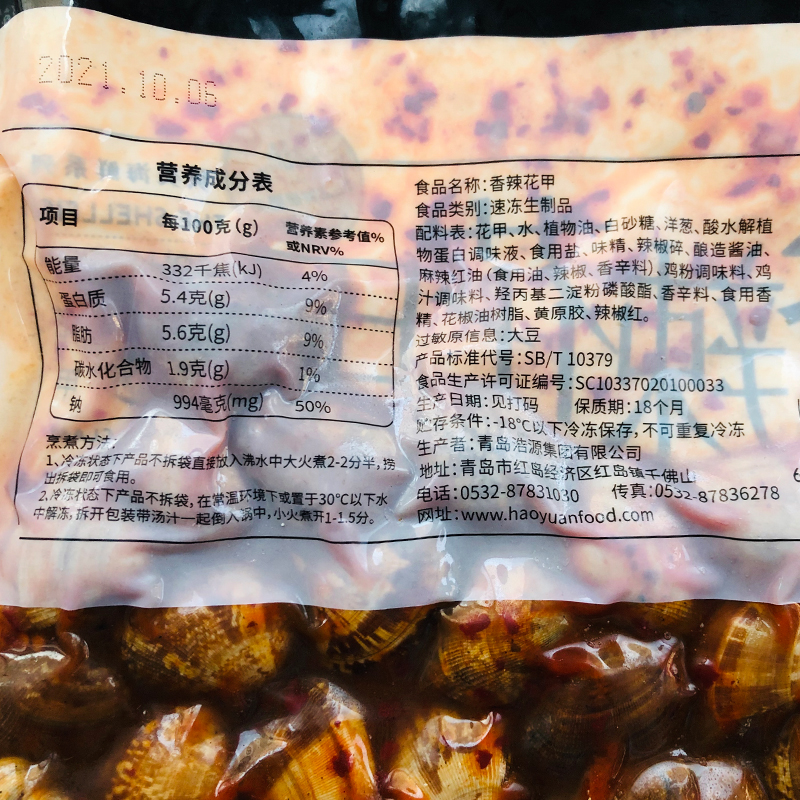 2021.10.06
营养成分表
项目 每100克(g) 营养素参考值%
或NRV%
能量 332千焦(kJ) 4%
蛋白质 5.4克(g) 9%
脂肪 5.6克(g) 9%
碳水化合物 1.9克(g) 1%
钠 994毫克(mg) 50%
烹煮方法:
1、冷冻状态下产品不拆袋直接放入沸水中大火煮2-2分半,捞
出拆袋即可食用。
2、冷冻状态下产品不拆袋,在常温环境下或置于30℃以下水
中解冻,拆开包装带汤汁一起倒入锅中,小火煮开1-1.5分。
食品名称:香辣花甲
食品类别:速冻生制品
配料表:花甲、水、植物油、白砂糖、洋葱、酸水解植
物蛋白调味液、食用盐、味精、辣椒碎、酿造酱油、
麻辣红油(食用油、辣椒、香辛料)、鸡粉调味料、鸡
汁调味料、羟丙基二淀粉磷酸酯、香辛料、食用香
精、花椒油树脂、黄原胶、辣椒红。
过敏原信息:大豆
产品标准代号:SB/T 10379
食品生产许可证编号:SC10337020100033
生产日期:见打码 保质期:18个月
贮存条件:-18℃以下冷冻保存,不可重复冷冻
生产者:青岛浩源集团有限公司
地址:青岛市红岛经济区红岛镇千佛山
电话:0532-87831030 传真:0532-87836278
网址:www.haoyuanfood.com